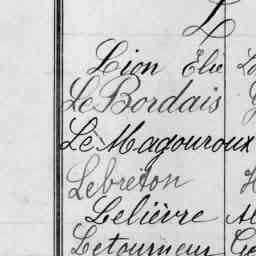 L
Lion Élie
Le Bordais
Le Magouroux
Lebreton
Lelièvre
Letourneur